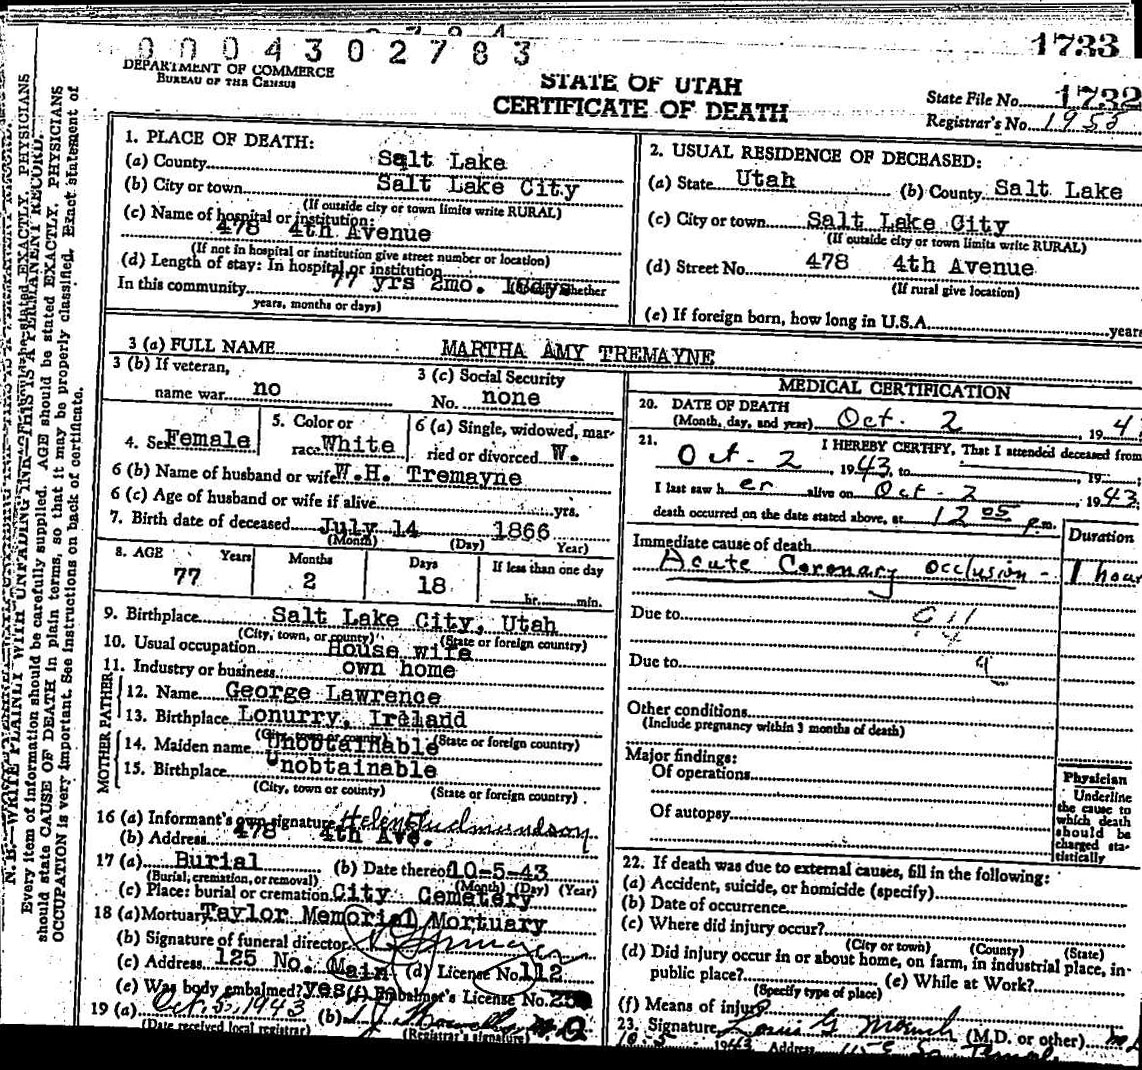 0004302783
1733
DEPARTMENT OF COMMERCE
BUREAU OF THE CENSUS
STATE OF UTAH
CERTIFICATE OF DEATH
State File No. 1732
Registrar's No. 1955
N. B.—WRITE PLAINLY WITH UNFADING INK—THIS IS A PERMANENT RECORD.
Every item of information should be carefully supplied. AGE should be stated EXACTLY. PHYSICIANS
should state CAUSE OF DEATH in plain terms, so that it may be properly classified. Exact statement of
OCCUPATION is very important. See instructions on back of certificate.
1. PLACE OF DEATH:
(a) County Salt Lake
(b) City or town Salt Lake City
(If outside city or town limits write RURAL)
(c) Name of hospital or institution:
478 4th Avenue
(If not in hospital or institution give street number or location)
(d) Length of stay: In hospital or institution
In this community 77 yrs 2mo. 18days whether
years, months or days)
2. USUAL RESIDENCE OF DECEASED:
(a) State Utah (b) County Salt Lake
(c) City or town Salt Lake City
(If outside city or town limits write RURAL)
(d) Street No. 478 4th Avenue
(If rural give location)
(e) If foreign born, how long in U.S.A. years
3 (a) FULL NAME MARTHA AMY TREMAYNE
3 (b) If veteran,
name war no
3 (c) Social Security
No. none
4. Sex Female
5. Color or
race White
6 (a) Single, widowed, mar-
ried or divorced W.
6 (b) Name of husband or wife W.H. Tremayne
6 (c) Age of husband or wife if alive yrs.
7. Birth date of deceased July 14 1866
(Month) (Day) Year)
8. AGE Years Months Days If less than one day
77 2 18 hr. min.
9. Birthplace Salt Lake City, Utah
(City, town, or county) (State or foreign country)
10. Usual occupation House wife
11. Industry or business own home
FATHER
12. Name George Lawrence
13. Birthplace Lonurry, Ireland
(City, town or county) (State or foreign country)
MOTHER
14. Maiden name Unobtainable
15. Birthplace Unobtainable
(City, town or county) (State or foreign country)
16 (a) Informant's own signature Helen Gudmundson
(b) Address 478 4th Ave.
17 (a) Burial (b) Date thereof 10-5-43
(Burial, cremation, or removal) (Month) (Day) (Year)
(c) Place: burial or cremation City Cemetery
18 (a) Mortuary Taylor Memorial Mortuary
(b) Signature of funeral director
(c) Address 125 No. Main (d) License No. 112
(e) Was body embalmed? yes (f) Embalmer's License No.
19 (a) Oct. 5, 1943 (b)
(Date received local registrar) (Registrar's signature)
MEDICAL CERTIFICATION
20. DATE OF DEATH
(Month, day, and year) Oct. 2, 194
21. I HEREBY CERTIFY, That I attended deceased from
Oct - 2, 1943, to , 19
I last saw her alive on Oct - 2 1943
death occurred on the date stated above, at 12 05 p.m.
Duration
Immediate cause of death
Acute Coronary occlusion - 1 hour
Due to
Due to
Other conditions
(Include pregnancy within 3 months of death)
Major findings:
Of operations
Of autopsy
Physician
Underline
the cause to
which death
should be
charged sta-
tistically
22. If death was due to external causes, fill in the following:
(a) Accident, suicide, or homicide (specify)
(b) Date of occurrence
(c) Where did injury occur?
(City or town) (County) (State)
(d) Did injury occur in or about home, on farm, in industrial place, in
public place? (e) While at Work?
(Specify type of place)
(f) Means of injury
23. Signature Louis G Moench (M.D. or other) MD
10-5 1943 Address 115 E So. Temple